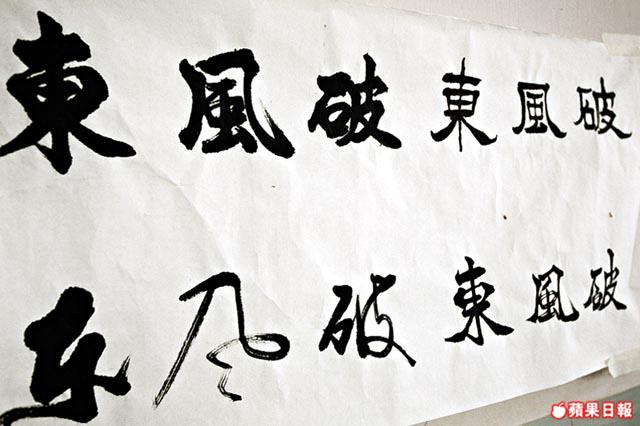 東風破 東風破
東風破 東風破
蘋果日報